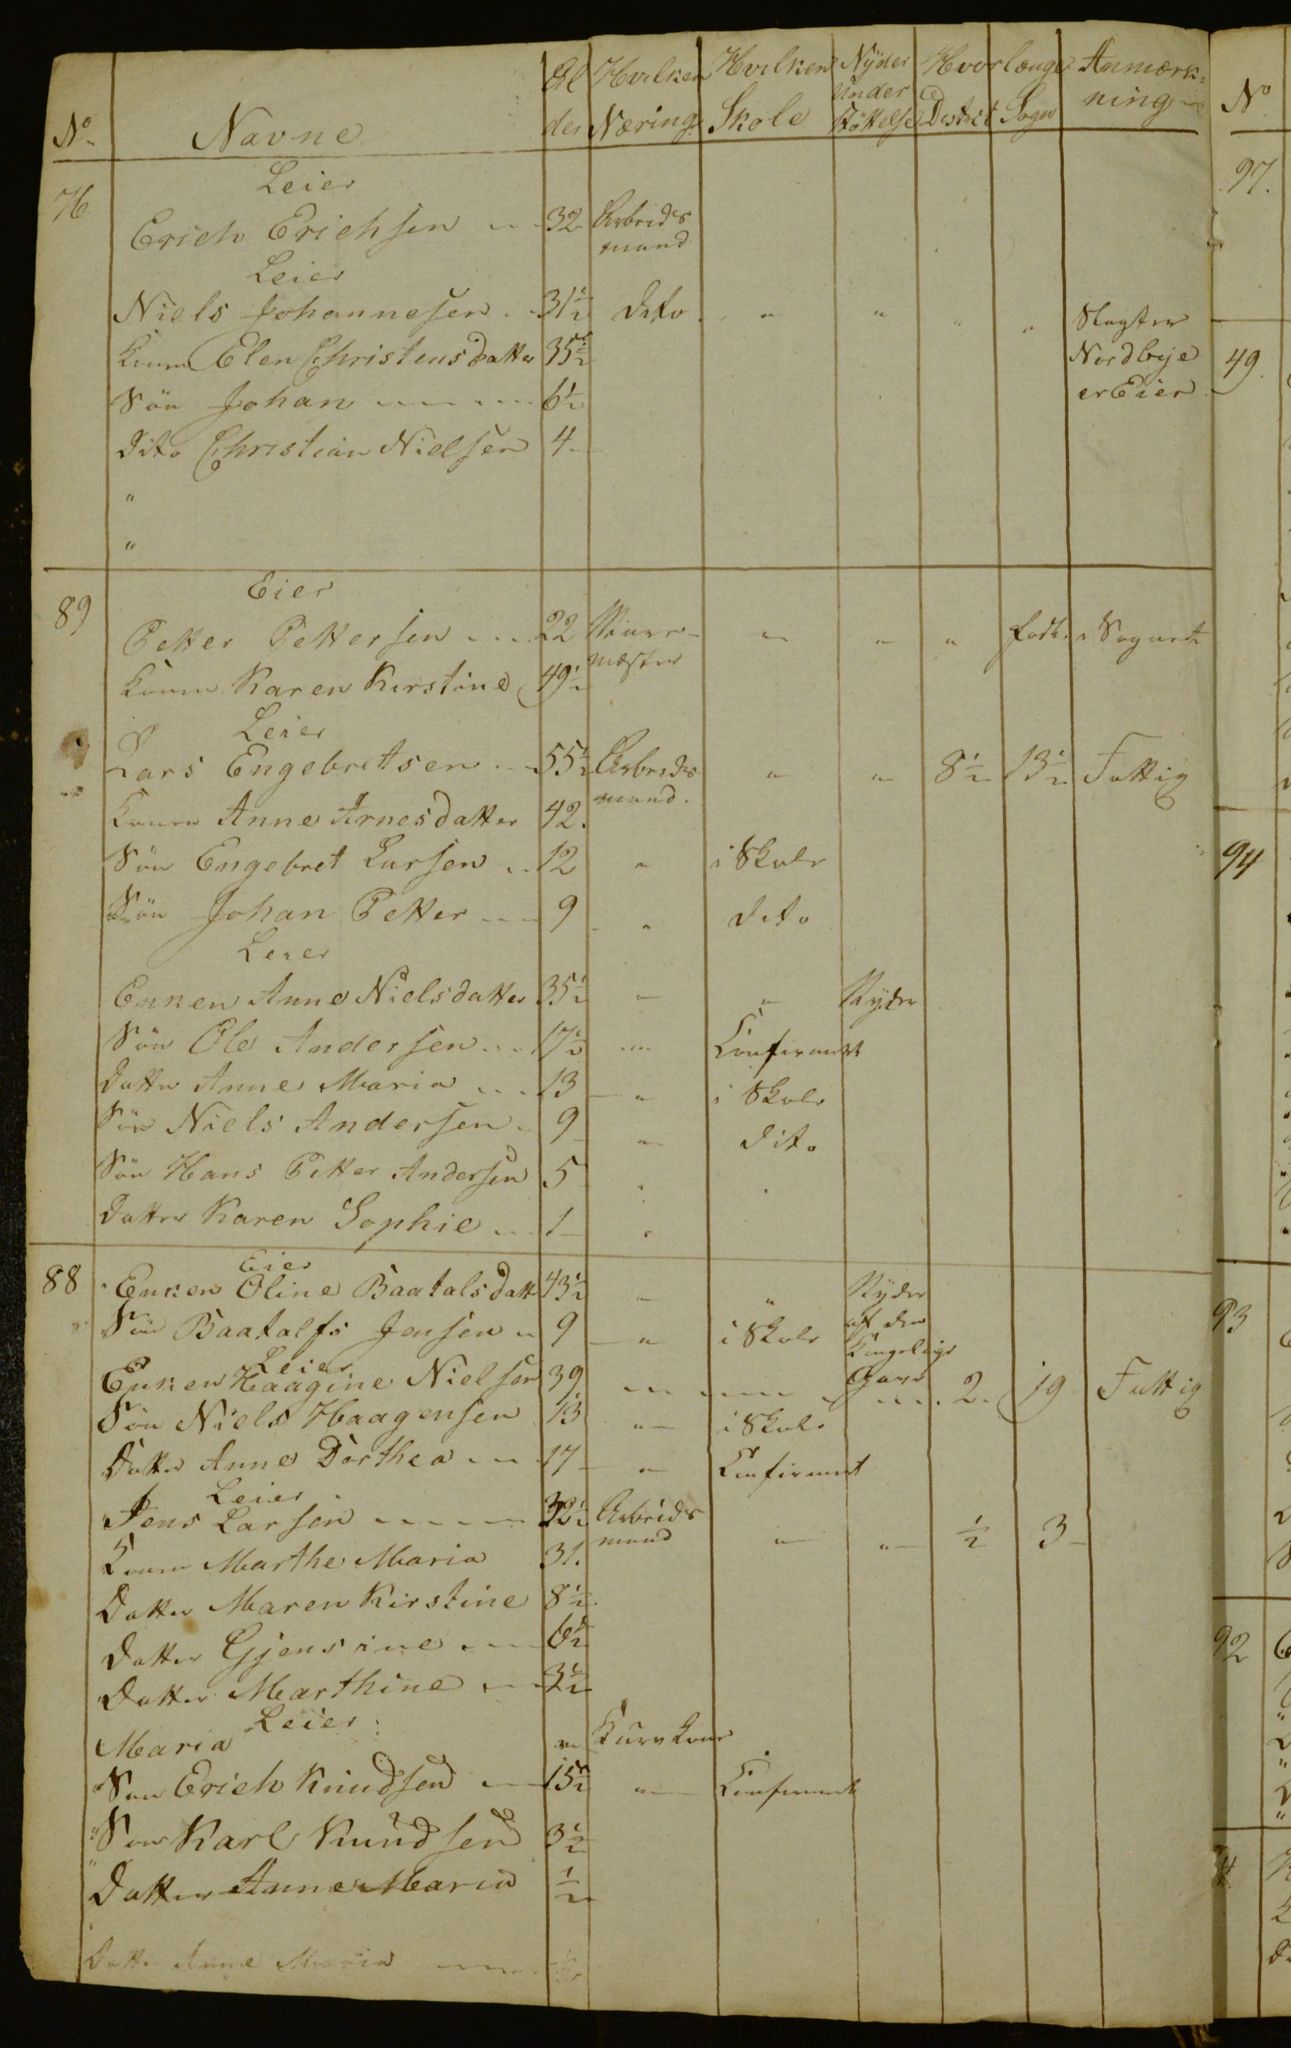 No. Navne Al der Hvilken Næring. Hvilken Skole Nÿder Under støttelse Hvorlænge Destrict Sogn Anmærk= ning
Leier
76 Erich Erichsen 32 Arbeids mand
Leier
Niels Johannesen 31½ dito " " " " Slagter
Konen Elen Christensdatter 35½ Nordbye
Søn Johan 6½ er Eier
dito Christian Nielsen 4
"
"
Eier
89 Petter Pettersen 22 Muur- mester " " " født i Sognet
Konen Karen Kirstine 49½
Leier
Lars Engebretsen 55½ Arbeids mand. " " 8½ 13½ Fattig
Konen Anne Arnesdatter 42.
Søn Engebret Larsen 12 " i Skole
Søn Johan Petter 9 " dito
Leier
Enken Anne Nielsdatter 35½ " " Nyder
Søn Ole Andersen 17½ " Confirmert
Datter Anne Maria 13 " i Skole
Søn Niels Andersen 9 " dito
Søn Hans Petter Andersen 5 " "
Datter Karen Sophie 1 "
Eier
88 Enken Oline Baatalsdatt 43½ " " Nyder
Søn Baatalfs Jensen 9 " i Skole af den
Leier Kongelige
Enken Haagine Nielsen 39 " " 2. 19 Fattig
Søn Niels Haagensen 13 " i Skole
Datter Anne Dorthea 17 " Confirmert
Leier
Jens Larsen 32½ Arbeids mand " " ½ 3
Konen Marthe Maria 31.
Datter Maren Kirstine 8½
Datter Gjensine 6½
Datter Marthine 3½
Leier
Maria "
Søn Erich Knudsen 15½ " Confirmert
Søn Karl Knudsen 3½
Datter Anne Maria ½
Datter Anne Maria ½
No
97.
49.
94
93
92